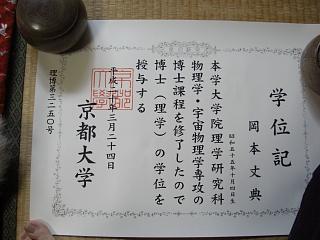 学位記
岡本丈典
昭和五十五年十月四日生
本学大学院理学研究科
物理学・宇宙物理学専攻の
博士課程を修了したので
博士（理学）の学位を
授与する
三月二十四日
京都大学
理博第三一五〇号